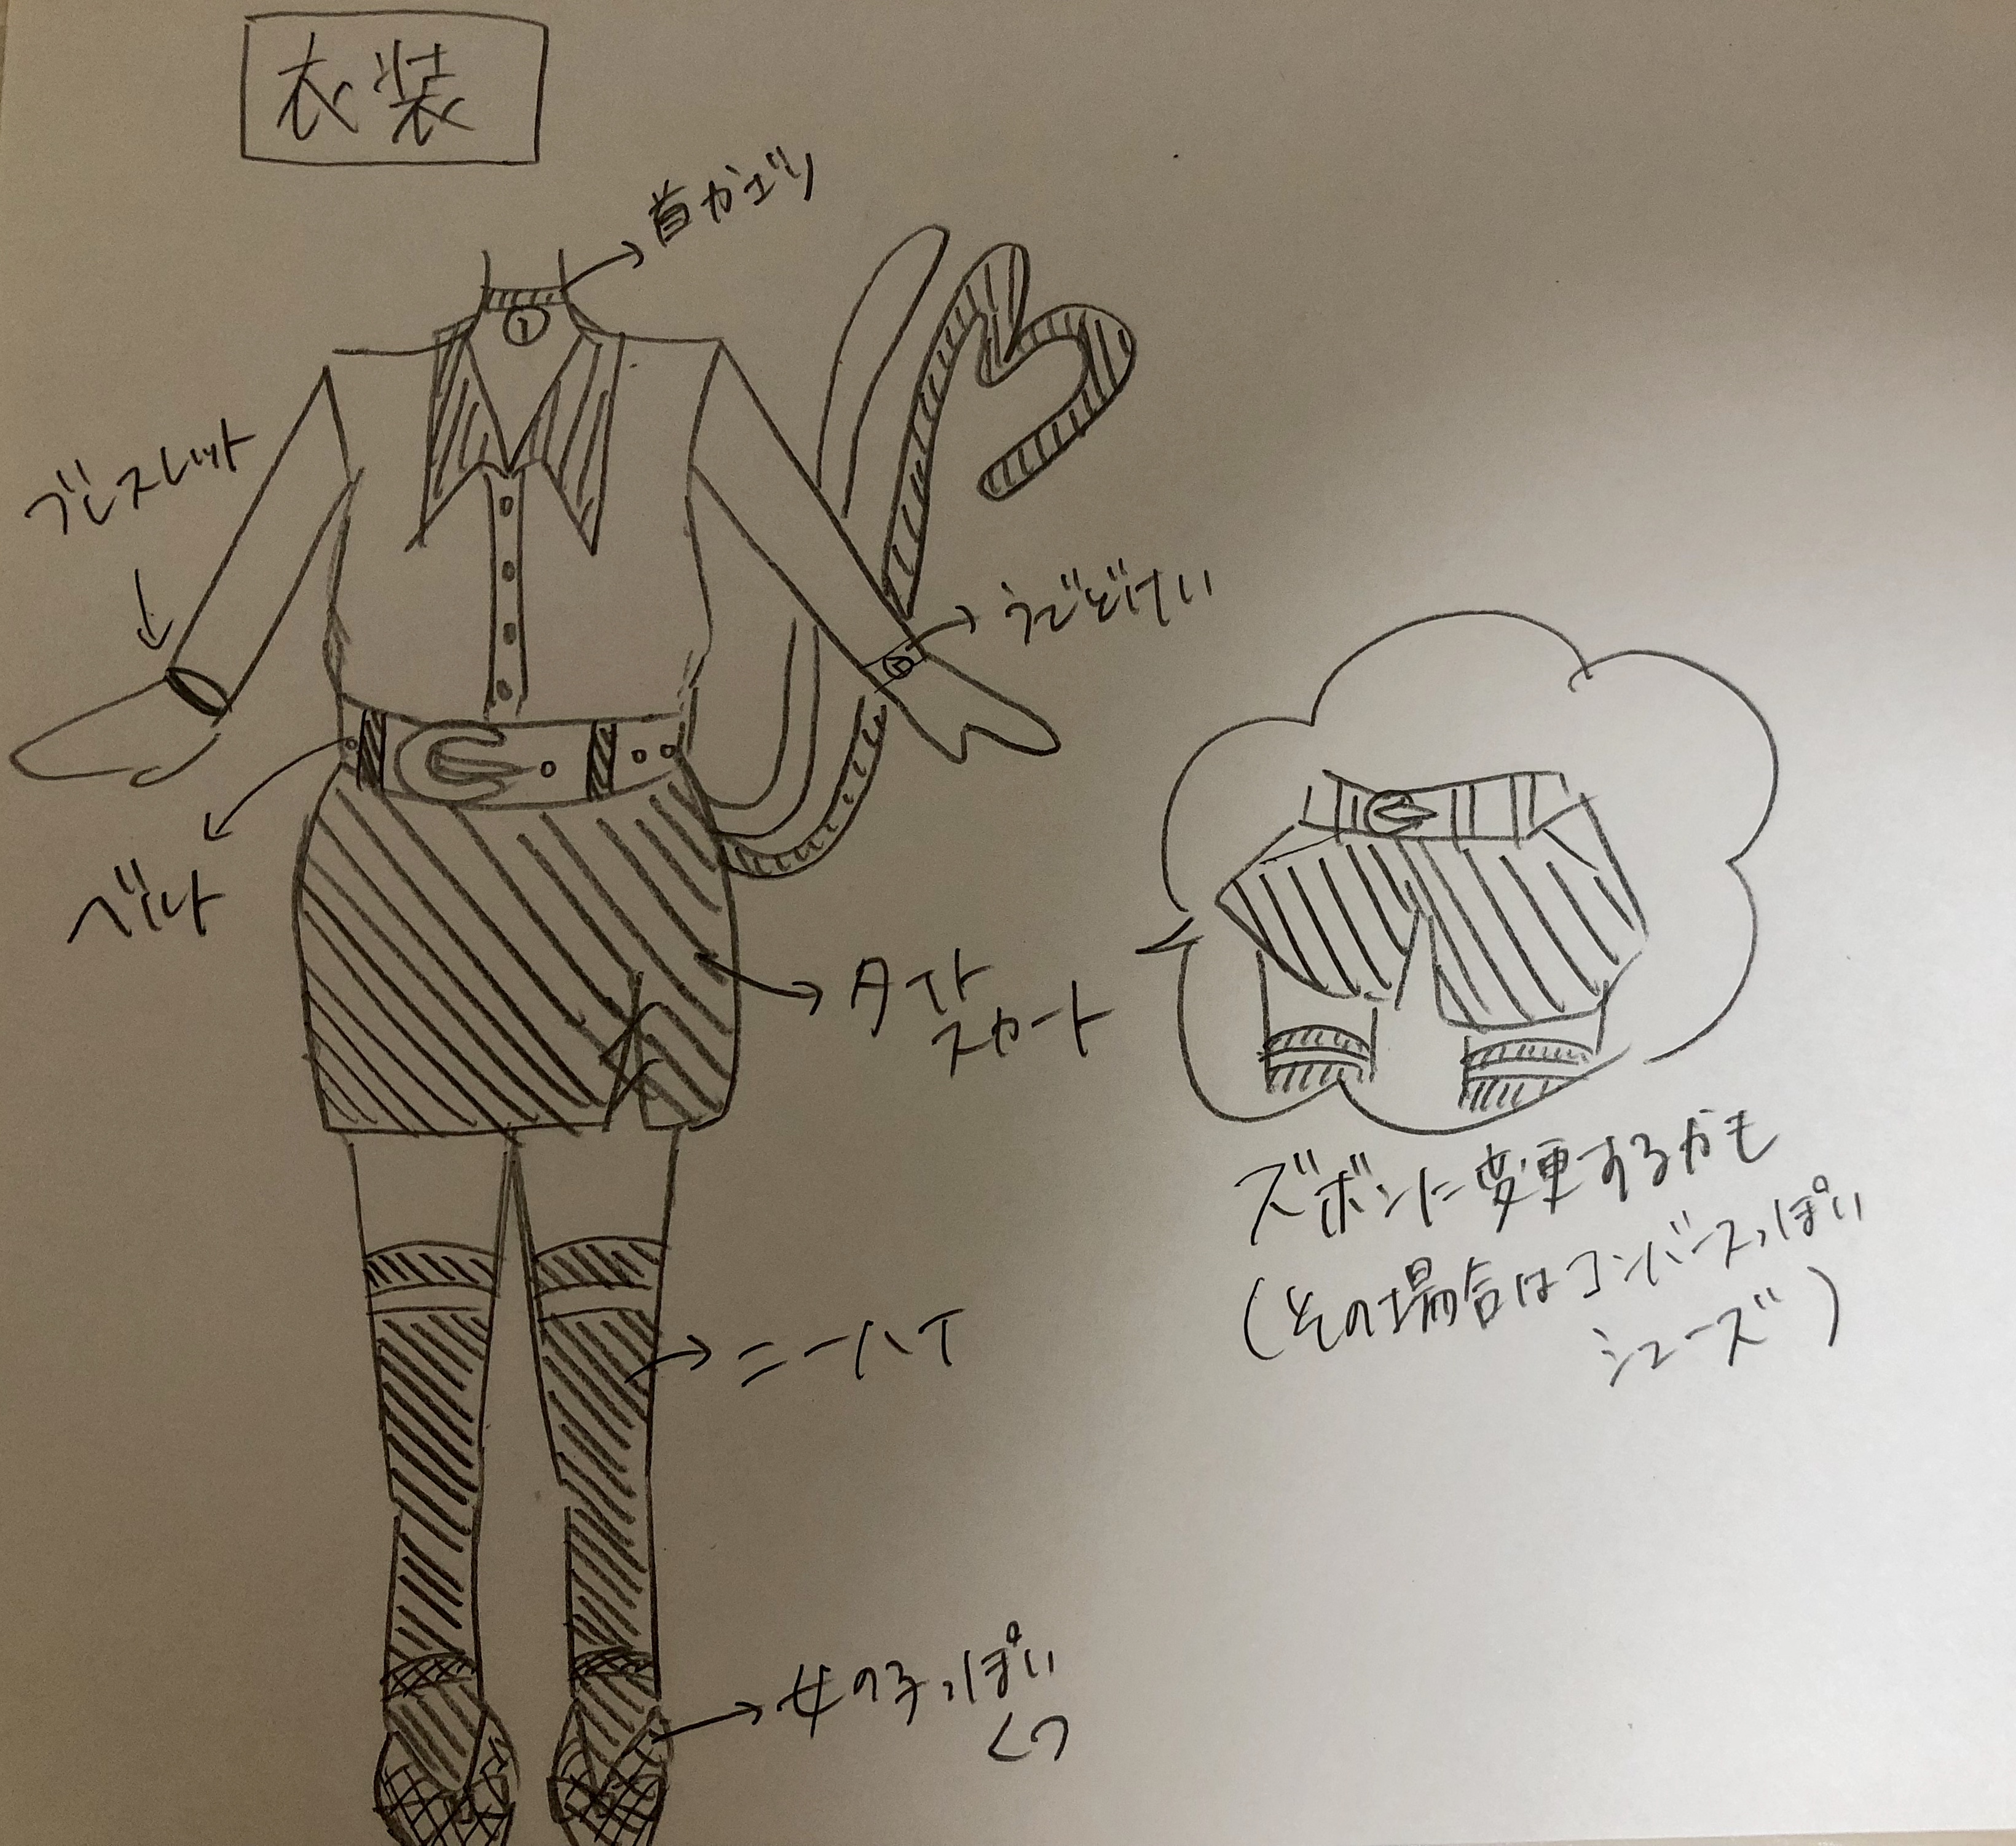 衣装
首かざり
ブレスレット
うでどけい
ベルト
タイト
スカート
ズボンに変更するかも
(その場合はコンバースっぽい
シューズ)
ニーハイ
女の子っぽい
くつ